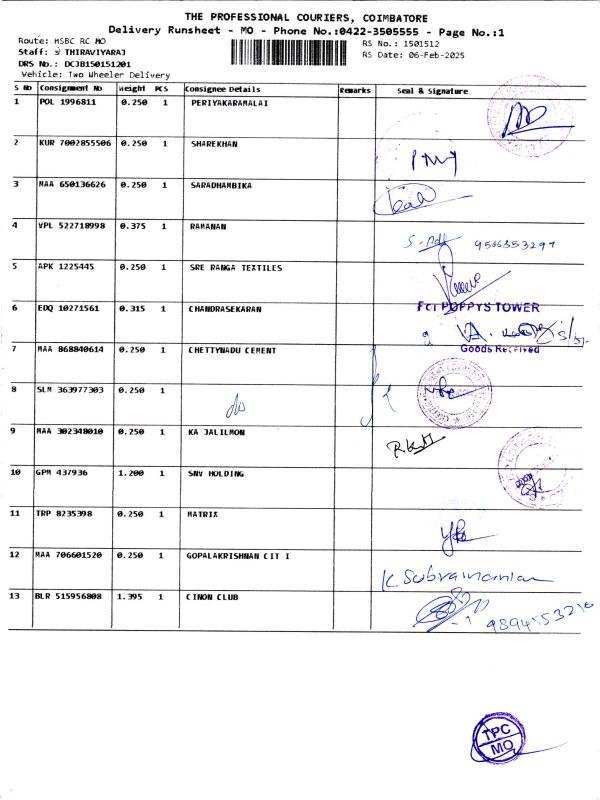 THE PROFESSIONAL COURIERS, COIMBATORE
Delivery Runsheet - MO - Phone No.:0422-3505555 - Page No.:1
Route: HSBC RC MO
RS No.: 1501512
Staff: THIRAVIYARAJ
RS Date: 06-Feb-2025
DRS No.: DCJB150151201
Vehicle: Two Wheeler Delivery
S No Consignment No Weight PCS Consignee Details Remarks Seal & Signature
1 POL 1996811 0.250 1 PERIYAKARAMALAI
2 KUR 7002855506 0.250 1 SHAREKHAN
3 MAA 650136626 0.250 1 SARADHAMBIKA
4 VPL 522718998 0.375 1 RAMANAN
9566353297
5 APK 1225445 0.250 1 SRE RANGA TEXTILES
6 EDQ 10271561 0.315 1 CHANDRASEKARAN
For POPPYS TOWER
Goods Received
7 MAA 868840614 0.250 1 CHETTYNADU CEMENT
8 SLM 363977303 0.250 1
9 MAA 302348010 0.250 1 KA JALILMON
10 GPM 437936 1.200 1 SNV HOLDING
11 TRP 8235398 0.250 1 MATRIX
12 MAA 706601520 0.250 1 GOPALAKRISHNAN CIT I
K. Subramanian
13 BLR 515956808 1.395 1 CINON CLUB
TPC
MO